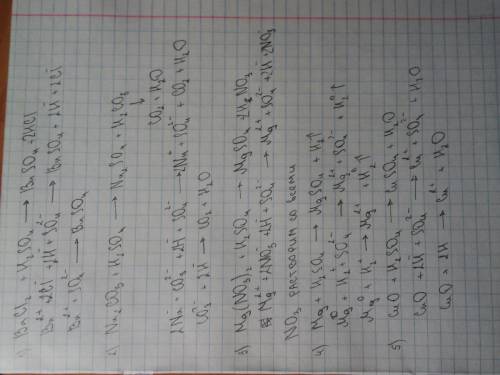 1) BaCl₂ + H₂SO₄ → BaSO₄ + 2HCl
Ba²⁺ + 2Cl⁻ + 2H⁺ + SO₄²⁻ → BaSO₄ + 2H⁺ + 2Cl⁻
Ba²⁺ + SO₄²⁻ → BaSO₄
2) Na₂CO₃ + H₂SO₄ → Na₂SO₄ + H₂CO₃
CO₂ + H₂O
2Na⁺ + CO₃²⁻ + 2H⁺ + SO₄²⁻ → 2Na⁺ + SO₄²⁻ + CO₂ + H₂O
CO₃²⁻ + 2H⁺ → CO₂ + H₂O
3) Mg(NO₃)₂ + H₂SO₄ → MgSO₄ + 2HNO₃
Mg²⁺ + 2NO₃⁻ + 2H⁺ + SO₄²⁻ → Mg²⁺ + SO₄²⁻ + 2H⁺ + 2NO₃⁻
NO₃ растворим со всеми
4) Mg + H₂SO₄ → MgSO₄ + H₂↑
Mg⁰ + H₂⁺ + SO₄²⁻ → Mg²⁺ + SO₄²⁻ + H₂⁰↑
Mg⁰ + H₂⁺ → Mg²⁺ + H₂↑
5) CuO + H₂SO₄ → CuSO₄ + H₂O
CuO + 2H⁺ + SO₄²⁻ → Cu²⁺ + SO₄²⁻ + H₂O
CuO + 2H⁺ → Cu²⁺ + H₂O